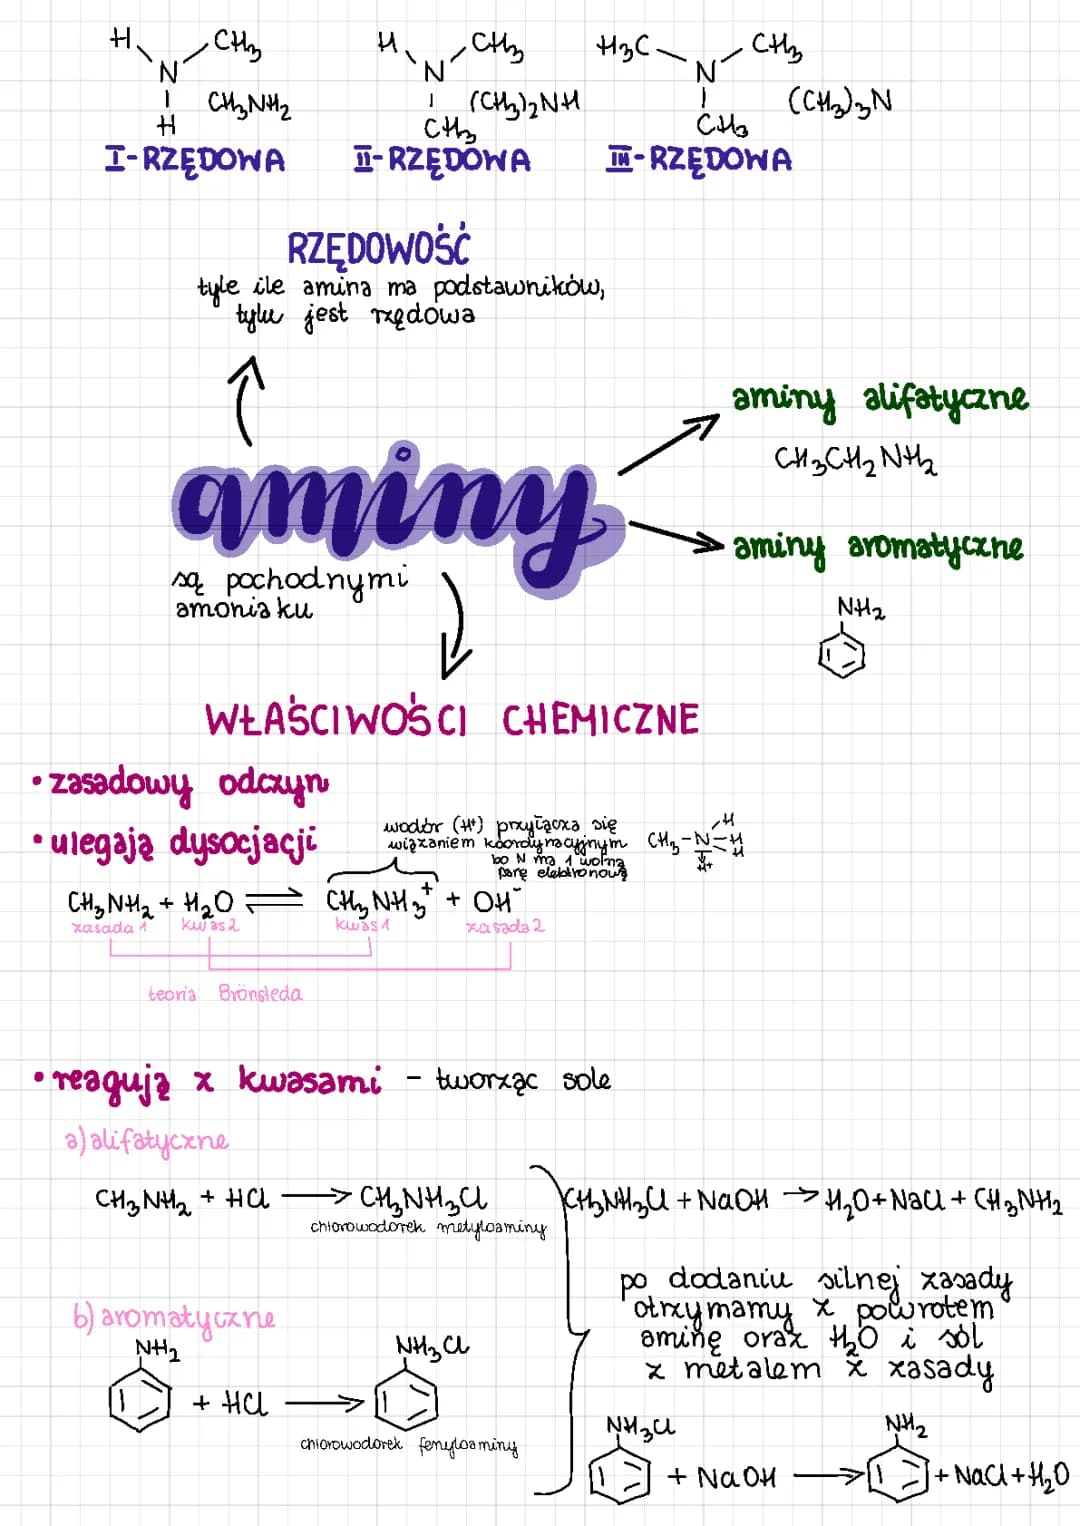 H CH₃ H CH₃ H₃C CH₃
N N N
H CH₃NH₂ CH₃ (CH₃)₂NH CH₃ (CH₃)₃N
I-RZĘDOWA II-RZĘDOWA III-RZĘDOWA
RZĘDOWOŚĆ
tyle ile amina ma podstawników,
tylu jest rzędowa
aminy alifatyczne
CH₃CH₂NH₂
aminy
aminy aromatyczne
są pochodnymi
amoniaku
NH₂
WŁAŚCIWOŚCI CHEMICZNE
• zasadowy odczyn
• ulegają dysocjacji
wodór (H⁺) przyłącza się
wiązaniem koordynacyjnym
bo N ma 1 wolną
parę elektronową
CH₃-N-H
H
H
H⁺
CH₃NH₂ + H₂O ⇌ CH₃NH₃⁺ + OH⁻
zasada 1 kwas 2 kwas 1 zasada 2
teoria Brönsteda
• reagują z kwasami - tworząc sole
a) alifatyczne
CH₃NH₂ + HCl → CH₃NH₃Cl
chlorowodorek metyloaminy
CH₃NH₃Cl + NaOH → H₂O + NaCl + CH₃NH₂
po dodaniu silnej zasady
otrzymamy z powrotem
aminę oraz H₂O i sól
z metalem z zasady
b) aromatyczne
NH₂ NH₃Cl
+ HCl →
chlorowodorek fenyloaminy
NH₃Cl NH₂
+ NaOH → + NaCl + H₂O